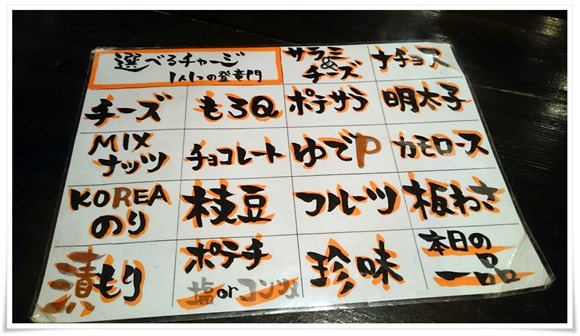 選べるチャージ
1人1つの登竜門
サラミ
&
チーズ
ナチョス
チーズ
もろQ
ポテサラ
明太子
MIX
ナッツ
チョコレート
ゆでP
カモロース
KOREA
のり
枝豆
フルーツ
板わさ
漬もり
ポテチ
塩orコンソメ
珍味
本日の
一品